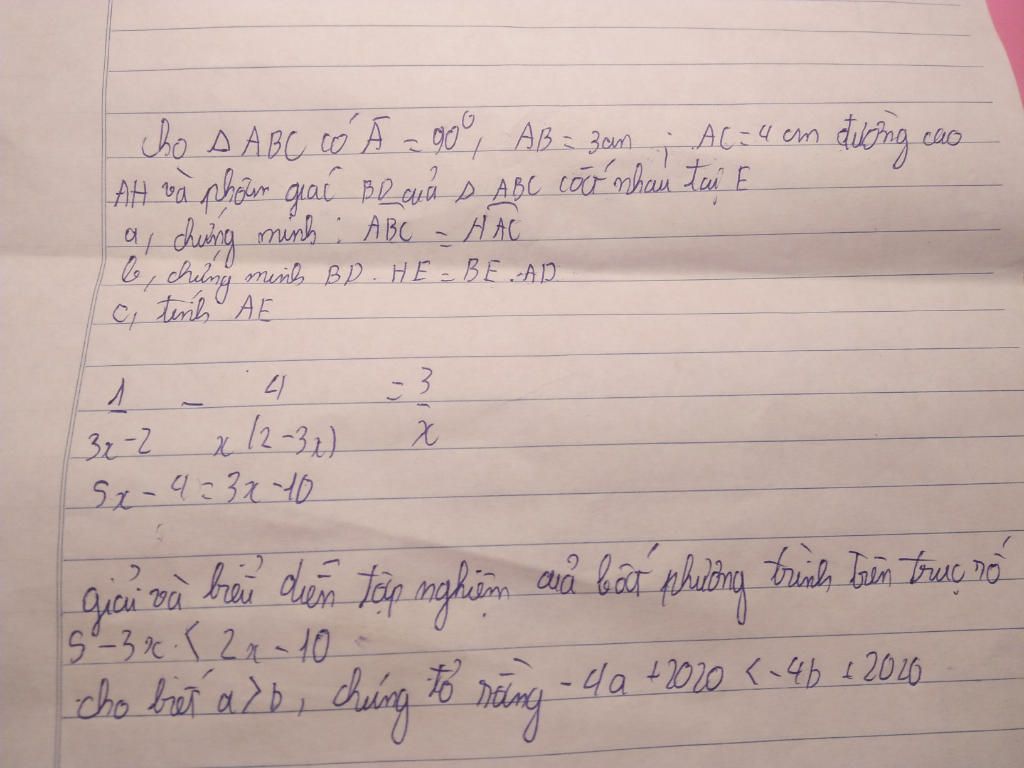 Cho Δ ABC có Â = 90⁰, AB = 3cm ; AC = 4 cm đường cao
AH và phân giác BD của Δ ABC cắt nhau tại E
a, chứng minh : ABC = HAC
b, chứng minh BD . HE = BE . AD
c, tính AE
1 - 4 = 3
3x - 2 x (2 - 3x) x
5x - 4 = 3x - 10
giải và biểu diễn tập nghiệm của bất phương trình trên trục số
5 - 3x < 2x - 10
cho biết a > b, chứng tỏ rằng - 4a + 2020 < - 4b + 2020